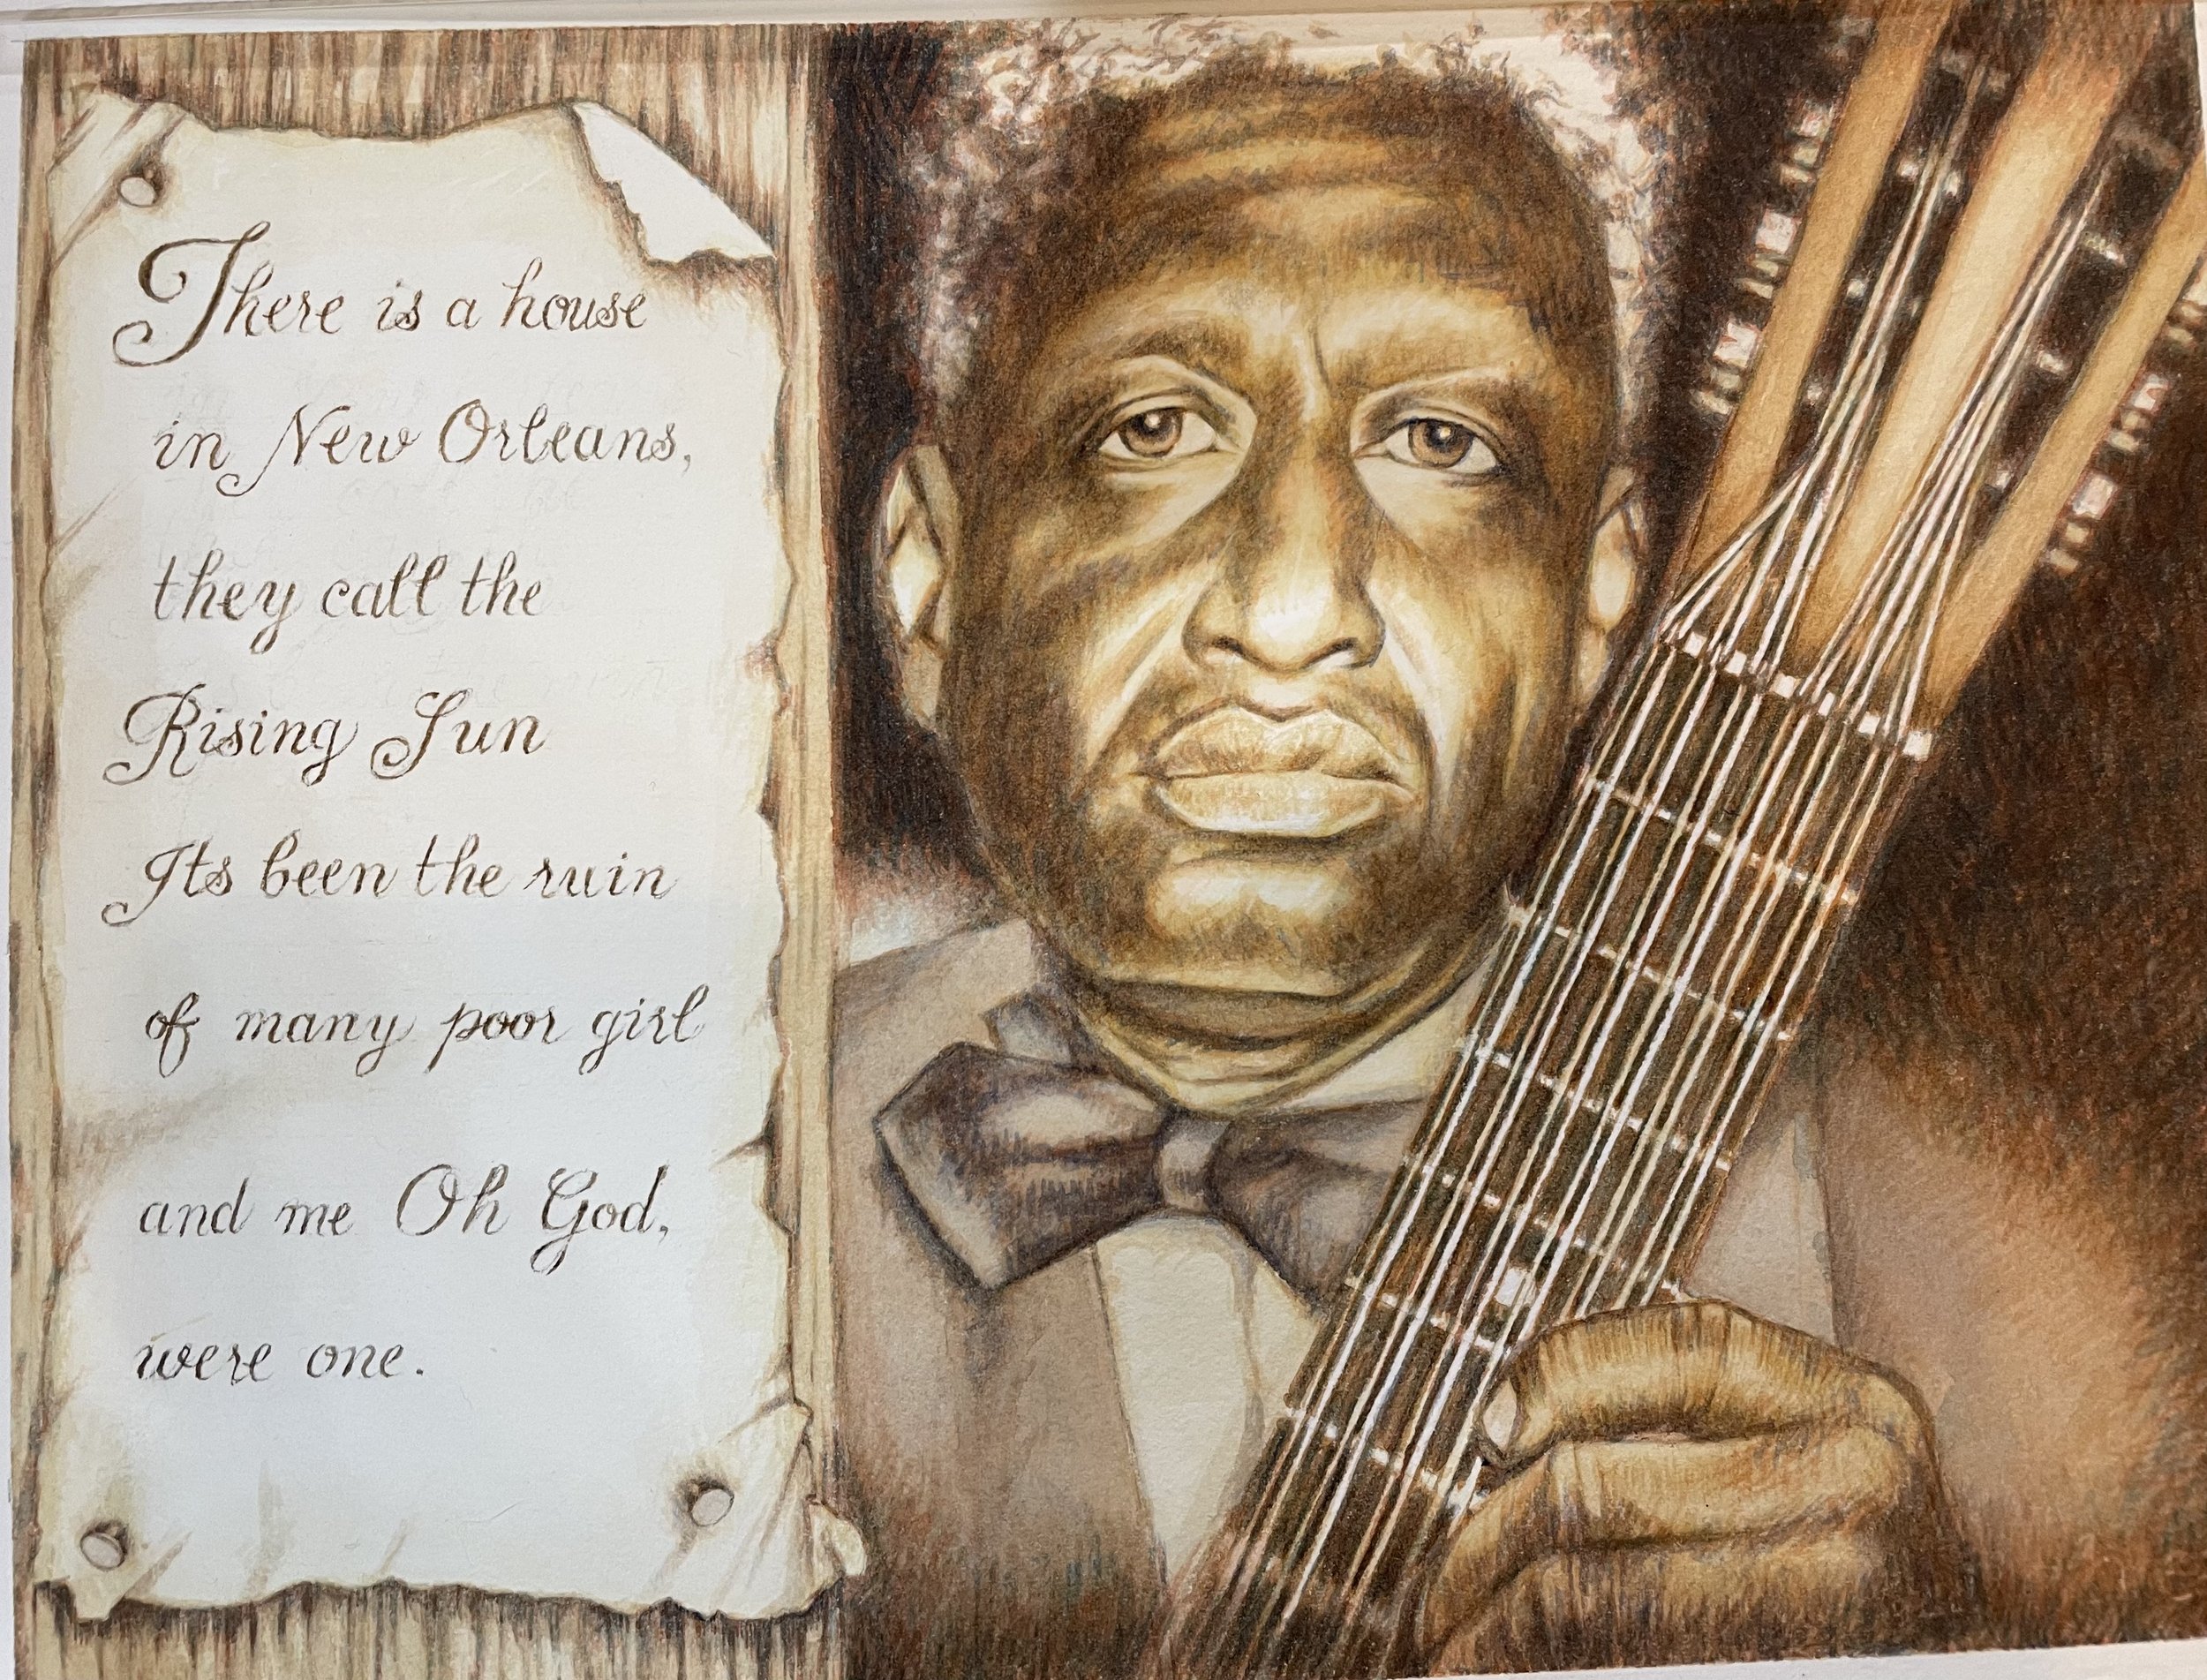 There is a house
in New Orleans,
they call the
Rising Sun
Its been the ruin
of many poor girl
and me Oh God,
were one.